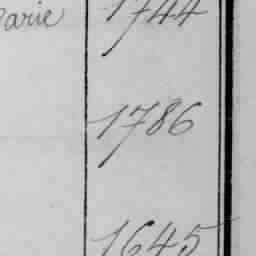 Marie 1744
1786
1645